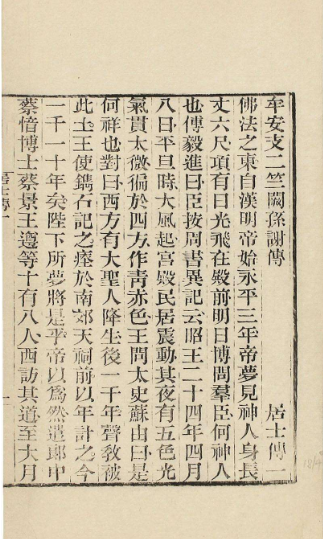 牟安支二竺闕孫謝傳　居士傳一
佛法之東自漢明帝始永平三年帝夢見神人身長
丈六尺項有日光飛在殿前明日博問羣臣何神人
也傅毅進曰臣按周書異記云昭王二十四年四月
八日平旦時大風起宮殿民居震動其夜有五色光
氣貫太微徧於四方作青赤色王問太史蘇由曰是
何祥也對曰西方有大聖人降生後一千年聲教被
此土王使鐫石記之瘞於南郊天祠前以年計之今
一千一十年矣陛下所夢將是乎帝以爲然遣郎中
蔡愔博士蔡景王遵等十有八人西訪其道至大月